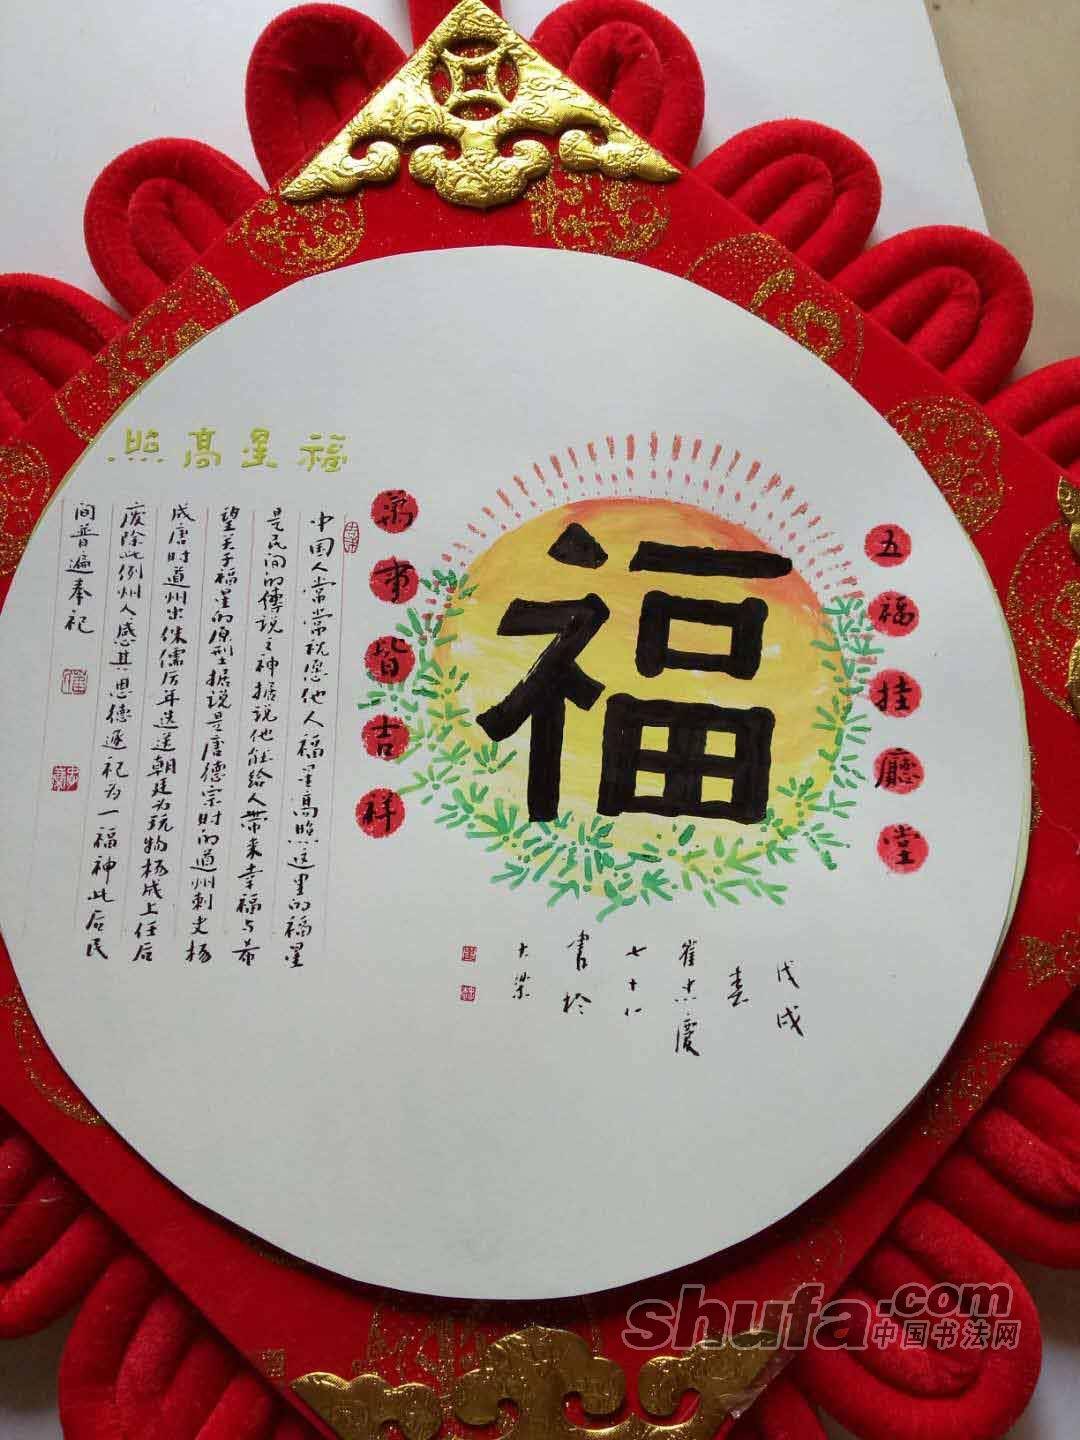 福星高照
福
五福挂厅堂
万事皆吉祥
中国人常常祝愿他人福星高照这里的福星
是民间的传说之神据说他能给人带来幸福与希
望关于福星的原型据说是唐德宗时的道州刺史杨
成唐时道州出侏儒历年选送朝廷为玩物杨成上任后
废除此例州人感其恩德逐祀为一福神此后民
间普遍奉祀
戊戌
春
七十
書於
大梁
shufa.com
中国书法网